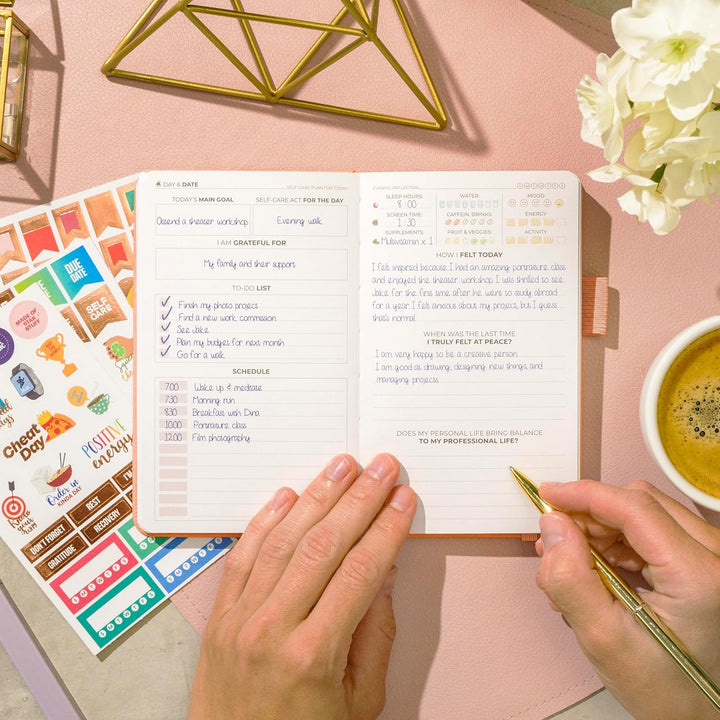 DAY & DATE
SELF-CARE PLAN FOR TODAY
TODAY'S MAIN GOAL
SELF-CARE ACT FOR THE DAY
Attend a theater workshop
Evening walk
I AM GRATEFUL FOR
My family and their support
TO-DO LIST
Finish my photo project
Find a new work commission
See Jake
Plan my budges for next month
Go for a walk
SCHEDULE
7:00 Wake up & meditate
7:30 Morning run
8:30 Breakfast with Dina
10:00 Portraiture class
12:00 Film photography
EVENING REFLECTION
S M T W T F S
SLEEP HOURS:
8:00
WATER:
MOOD:
SCREEN TIME:
1:30
CAFFEIN. DRINKS:
ENERGY:
SUPPLEMENTS:
Multivitamin x 1
FRUIT & VEGGIES:
ACTIVITY:
HOW I FELT TODAY
I felt inspired because I had an amazing portraiture class
and enjoyed the theater workshop. I was thrilled to see
Jake for the first time after he went to study abroad
for a year. I felt anxious about my project, but I guess
that's normal.
WHEN WAS THE LAST TIME
I TRULY FELT AT PEACE?
I am very happy to be a creative person.
I am good at drawing, designing new things, and
managing projects.
DOES MY PERSONAL LIFE BRING BALANCE
TO MY PROFESSIONAL LIFE?
DUE DATE
SELF CARE
MADE OF STAR STUFF
Cheat Day
POSITIVE energy
Order IN DAY
DON'T FORGET
REST
RECOVERY
GRATITUDE
S M T W T F S
S M T W T F S
S M T W T F S